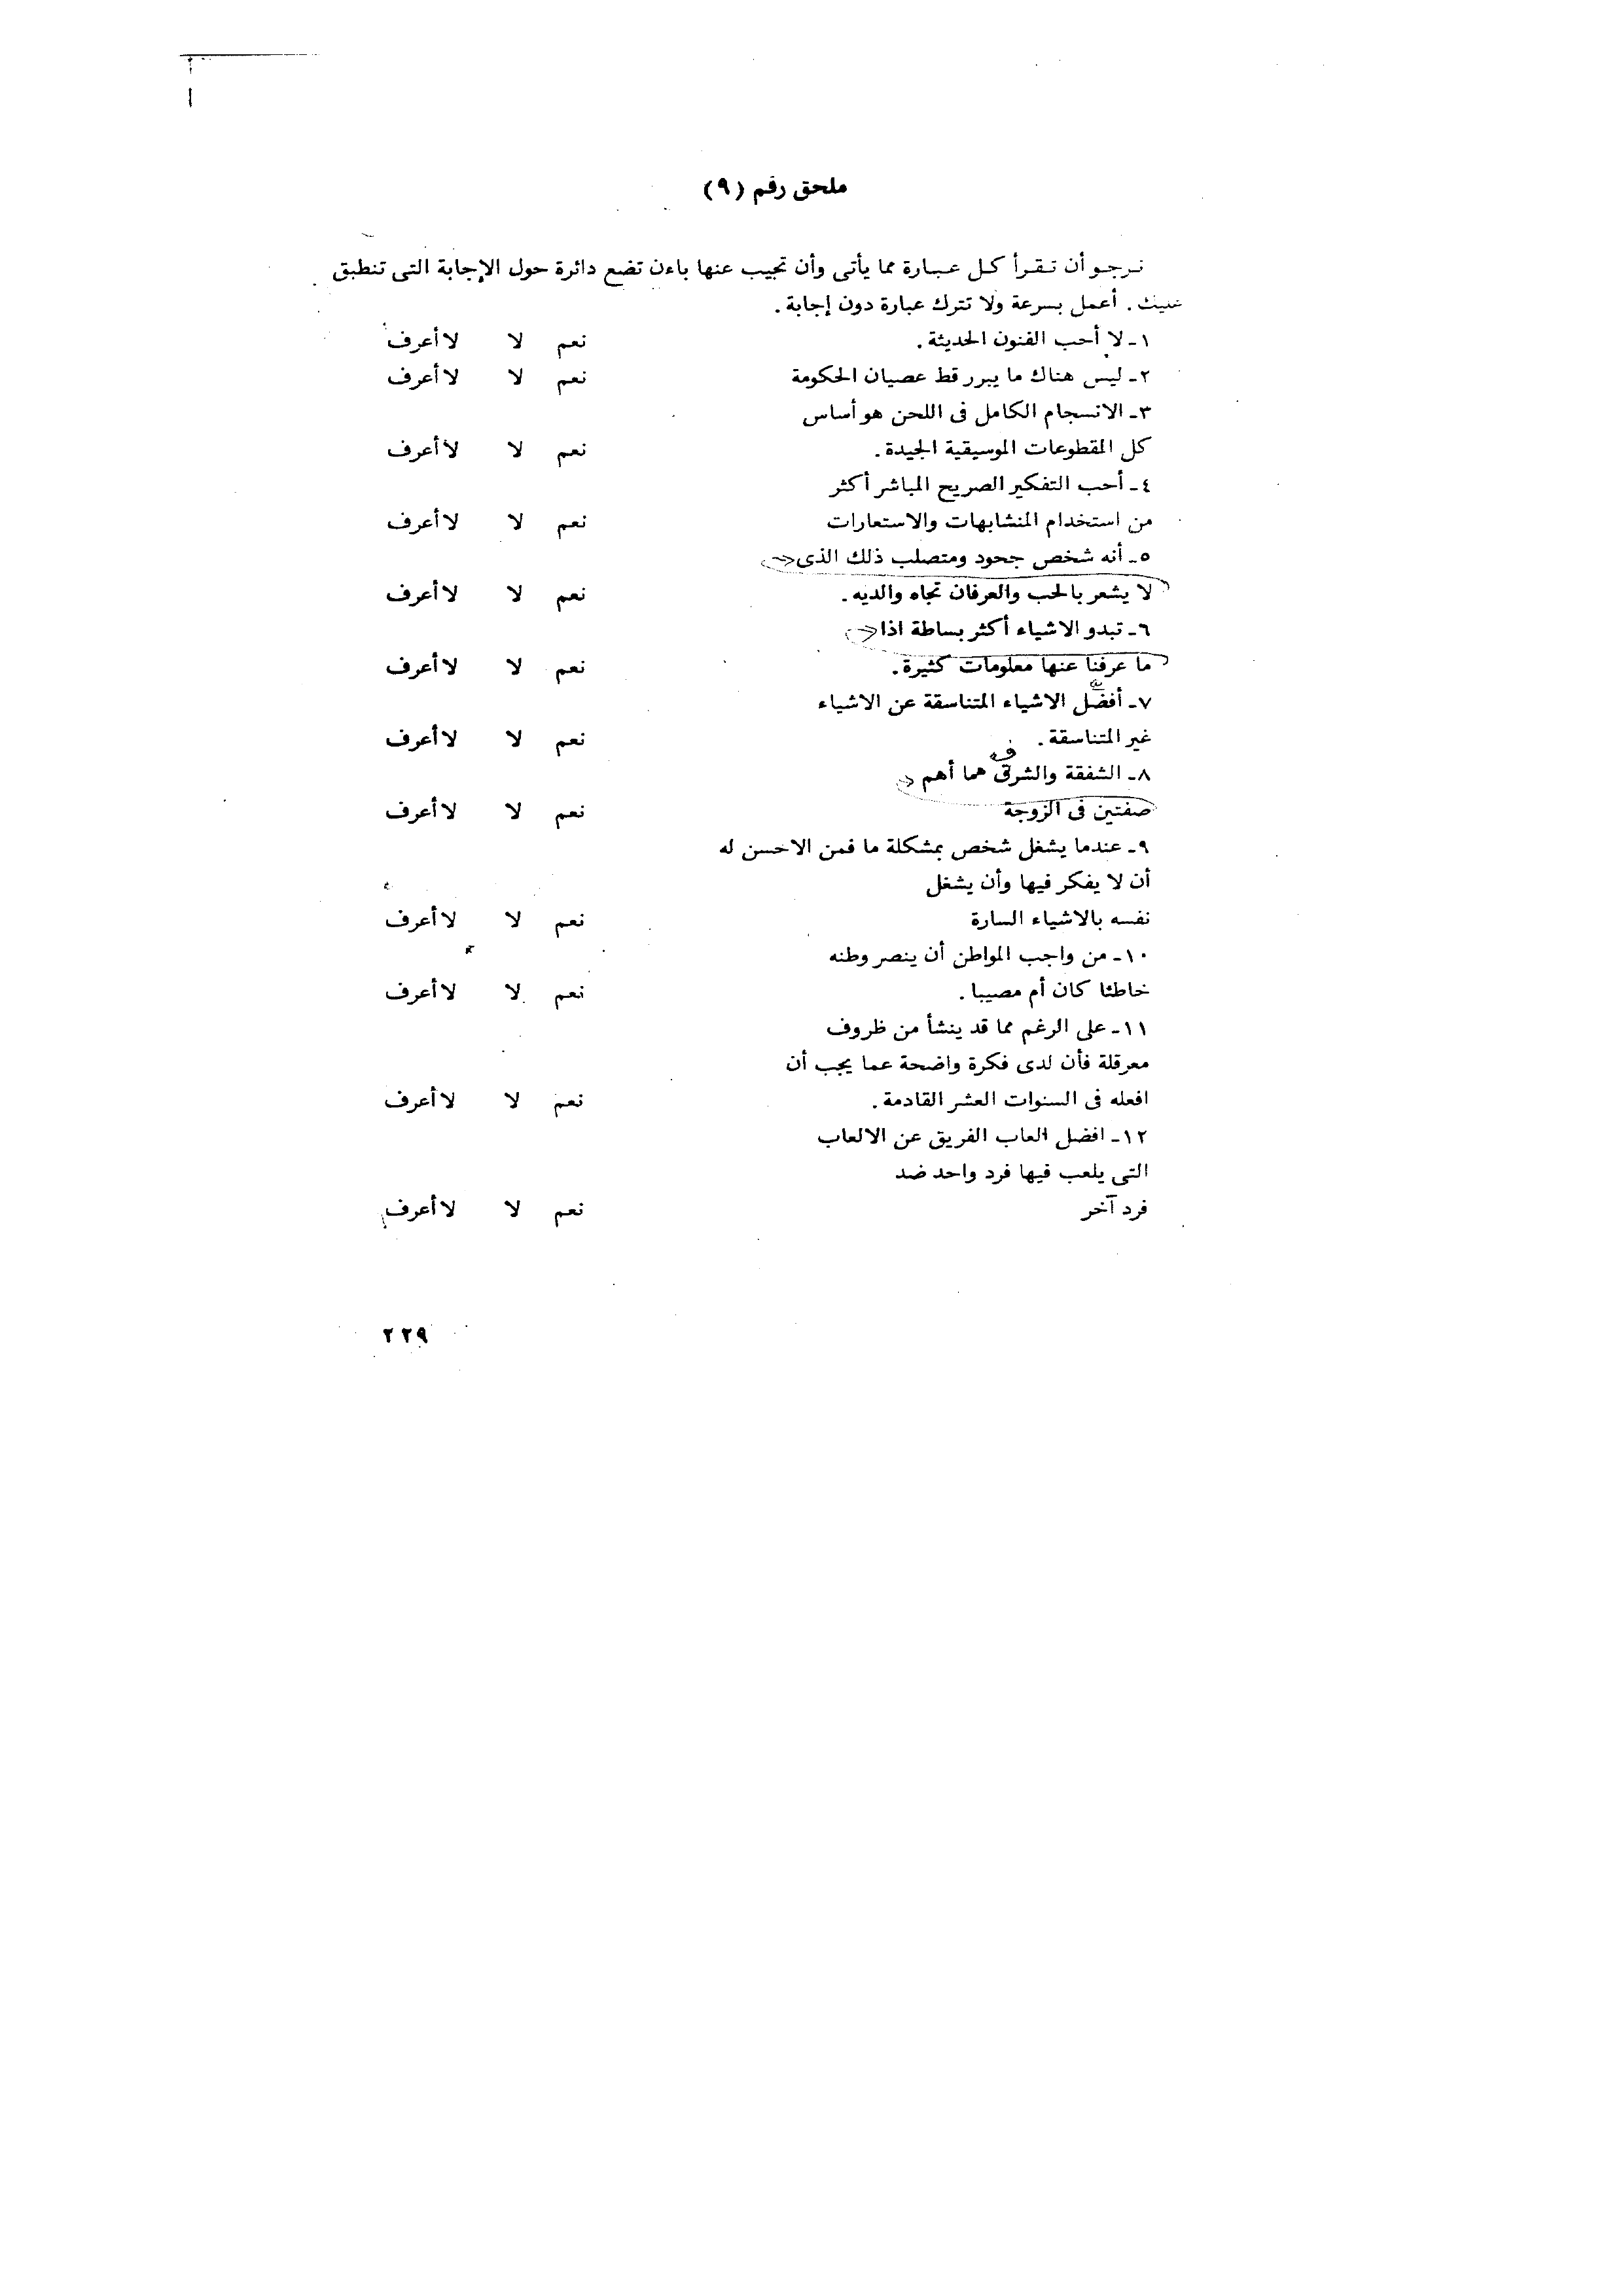 ملحق رقم (٩)
نرجو أن تقرأ كل عبارة مما يأتى وأن تجيب عنها باءن تضع دائرة حول الإجابة التى تنطبق
عليك . أعمل بسرعة ولا تترك عبارة دون إجابة .
١ـ لا أحب الفنون الحديثة . نعم لا لا أعرف
٢ـ ليس هناك ما يبرر قط عصيان الحكومة نعم لا لا أعرف
٣ـ الانسجام الكامل فى اللحن هو أساس
كل المقطوعات الموسيقية الجيدة . نعم لا لا أعرف
٤ـ أحب التفكير الصريح المباشر أكثر
من استخدام المتشابهات والاستعارات نعم لا لا أعرف
٥ـ أنه شخص جحود ومتصلب ذلك الذى
لا يشعر بالحب والعرفان تجاه والديه . نعم لا لا أعرف
٦ـ تبدو الاشياء أكثر بساطة اذا
ما عرفنا عنها معلومات كثيرة . نعم لا لا أعرف
٧ـ أفضل الاشياء المتناسقة عن الاشياء
غير المتناسقة . نعم لا لا أعرف
ف
٨ـ الشفقة والشرق هما أهم
صفتين فى الزوجة نعم لا لا أعرف
٩ـ عندما يشغل شخص بمشكلة ما فمن الاحسن له
أن لا يفكر فيها وأن يشغل
نفسه بالاشياء السارة نعم لا لا أعرف
١٠ـ من واجب المواطن أن ينصر وطنه
خاطئا كان أم مصيبا . نعم لا لا أعرف
١١ـ على الرغم مما قد ينشأ من ظروف
معرقلة فأن لدى فكرة واضحة عما يجب أن
افعله فى السنوات العشر القادمة . نعم لا لا أعرف
١٢ـ افضل العاب الفريق عن الالعاب
التى يلعب فيها فرد واحد ضد
فرد آخر نعم لا لا أعرف
٢٢٩